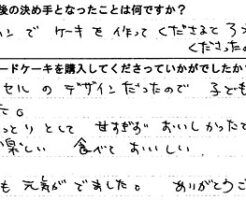 後の決め手となったことは何ですか?
ンで ケーキを 作って くださるところ
くださったの
ードケーキを購入してくださっていかがでしたか
セルの デザインだったので 子ども
た。
っとりとして 甘すぎず おいしかったで
楽しい 食べて おいしい
も 元気がでました。 ありがとうご